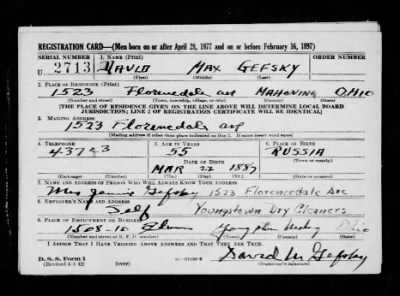 REGISTRATION CARD—(Men born on or after April 28, 1877 and on or before February 16, 1897)
SERIAL NUMBER 1. NAME (Print) ORDER NUMBER
U 2713 DAVID MAX GEFSKY
(First) (Middle) (Last)
2. PLACE OF RESIDENCE (Print)
1523 Florencedale ave MAHONING OHIO
(Number and street) (Town, township, village, or city) (County) (State)
[THE PLACE OF RESIDENCE GIVEN ON THE LINE ABOVE WILL DETERMINE LOCAL BOARD
JURISDICTION; LINE 2 OF REGISTRATION CERTIFICATE WILL BE IDENTICAL]
3. MAILING ADDRESS
1523 Florencedale ave
(Mailing address if other than place indicated on line 2. If same insert word same)
4. TELEPHONE 5. AGE IN YEARS 6. PLACE OF BIRTH
43723 55 RUSSIA
DATE OF BIRTH (Town or county)
MAR 22 1887
(Mo.) (Day) (Yr.) (State or country)
7. NAME AND ADDRESS OF PERSON WHO WILL ALWAYS KNOW YOUR ADDRESS
Gefsky 1523 Florencedale Ave
8. EMPLOYER'S NAME AND ADDRESS
Self Youngstown Dry Cleaners
9. PLACE OF EMPLOYMENT OR BUSINESS
1508-10 Elm Youngstown Ohio
(Number and street or R. F. D. number) (Town) (County) (State)
I AFFIRM THAT I HAVE VERIFIED ABOVE ANSWERS AND THAT THEY ARE TRUE.
D. S. S. Form 1
(Revised 4-1-42) (over)
David M Gefsky